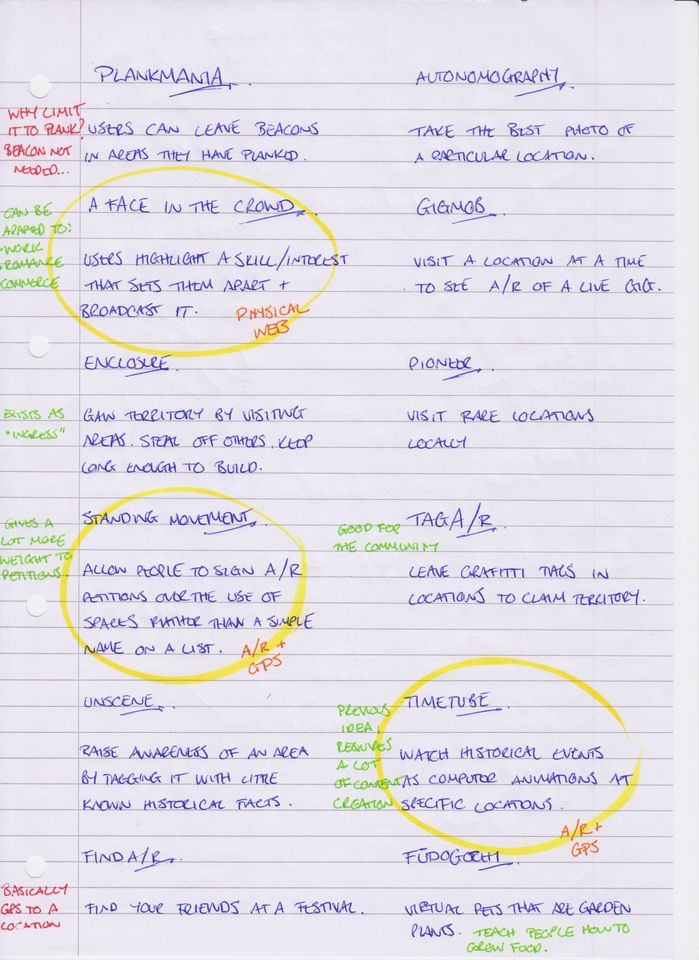 PLANKMANIA.
WHY LIMIT
IT TO PLANK?
BEACON NOT
NEEDED...
USERS CAN LEAVE BEACONS
IN AREAS THEY HAVE PLANKED.
AUTONOMOGRAPHY
TAKE THE BEST PHOTO OF
A PARTICULAR LOCATION.
A FACE IN THE CROWD.
CAN BE
ADAPTED TO:
WORK
ROMANCE
COMMERCE
USERS HIGHLIGHT A SKILL/INTEREST
THAT SETS THEM APART +
BROADCAST IT.
PHYSICAL
WEB
GIGMOB.
VISIT A LOCATION AT A TIME
TO SEE A/R OF A LIVE GIG.
ENCLOSURE.
EXISTS AS
"INGRESS"
GAIN TERRITORY BY VISITING
AREAS. STEAL OFF OTHERS. KEEP
LONG ENOUGH TO BUILD.
PIONEER.
VISIT RARE LOCATIONS
LOCALLY
STANDING MOVEMENT.
GIVES A
LOT MORE
WEIGHT TO
PETITIONS
ALLOW PEOPLE TO SIGN A/R
PETITIONS OVER THE USE OF
SPACES RATHER THAN A SIMPLE
NAME ON A LIST.
A/R +
GPS
TAG A/R.
GOOD FOR
THE COMMUNITY
LEAVE GRAFITTI TAGS IN
LOCATIONS TO CLAIM TERRITORY.
UNSCENE.
RAISE AWARENESS OF AN AREA
BY TAGGING IT WITH LITTLE
KNOWN HISTORICAL FACTS.
TIMETUBE.
PREVIOUS
IDEA,
REQUIRES
A LOT
OF CONTENT
CREATION
WATCH HISTORICAL EVENTS
AS COMPUTER ANIMATIONS AT
SPECIFIC LOCATIONS.
A/R +
GPS
FIND A/R.
BASICALLY
GPS TO A
LOCATION
FIND YOUR FRIENDS AT A FESTIVAL.
FŪDOGOTCHI.
VIRTUAL PETS THAT ARE GARDEN
PLANTS. TEACH PEOPLE HOW TO
GROW FOOD.